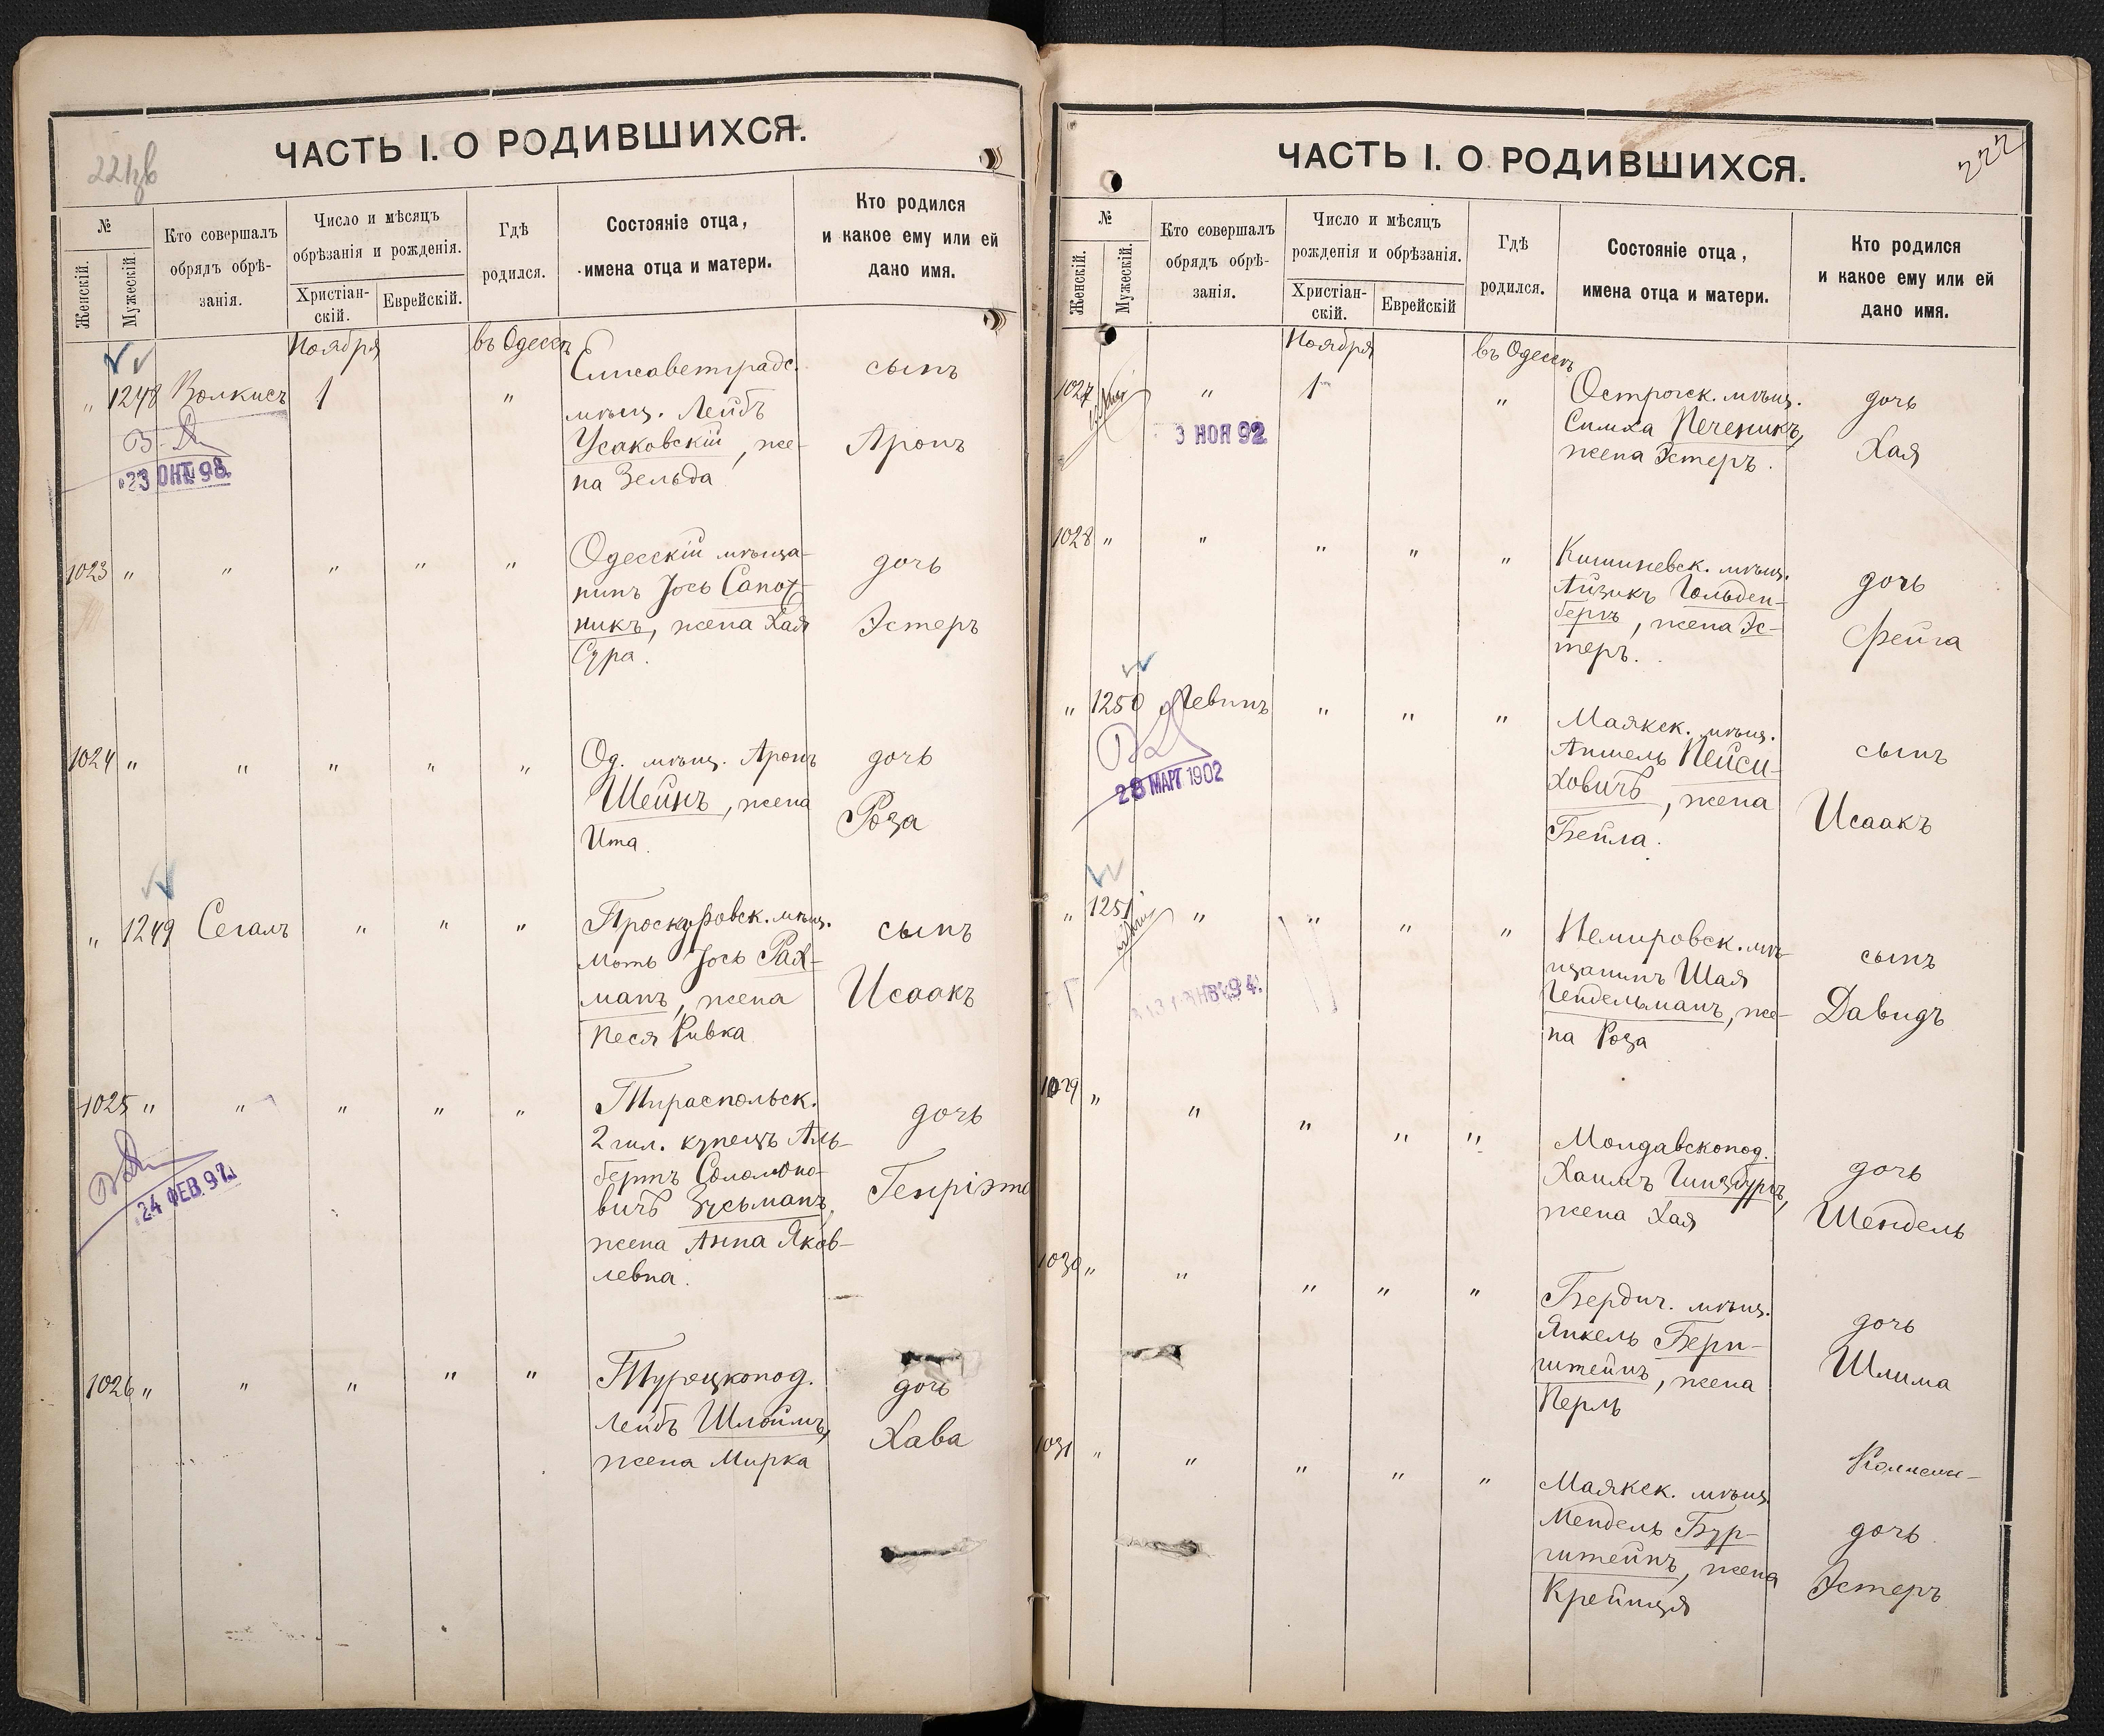 221об
ЧАСТЬ I. О РОДИВШИХСЯ.
№
Женскій.
Мужескій.
Кто совершалъ
обрядъ обрѣ-
занія.
Число и мѣсяцъ
обрѣзанія и рожденія.
Христіан-
скій.
Еврейскій.
Гдѣ
родился.
Состояніе отца,
имена отца и матери.
Кто родился
и какое ему или ей
дано имя.
Ноября
въ Одессѣ
" 1248 Волкисъ 1 "
23 ОКТ. 98.
Елисаветградс.
мѣщ. Лейбъ
Усаковскій, же-
на Зельда
сынъ
Аронъ
1023 " " " " "
Одесскій мѣща-
нинъ Іось Сапож-
никъ, жена Хая
Сура.
дочь
Эстеръ
1024 " " " " "
Од. мѣщ. Аронъ
Шейнъ, жена
Ита.
дочь
Роза
" 1249 Сегалъ " " "
Проскуровск. мѣщ.
Моть Іось Рах-
манъ, жена
Песя Ривка
сынъ
Исаакъ
1025 " " " " "
24 ФЕВ. 97.
Тираспольск.
2 гил. купецъ Аль-
бертъ Соломоно-
вичъ Зусьманъ,
жена Анна Яков-
левна.
дочь
Генріэта
1026 " " " " "
Турецкопод.
Лейбъ Шлоймъ,
жена Мирка
дочь
Хава
222
ЧАСТЬ I. О РОДИВШИХСЯ.
№
Женскій.
Мужескій.
Кто совершалъ
обрядъ обрѣ-
занія.
Число и мѣсяцъ
рожденія и обрѣзанія.
Христіан-
скій.
Еврейскій
Гдѣ
родился.
Состояніе отца,
имена отца и матери.
Кто родился
и какое ему или ей
дано имя.
Ноября
въ Одессѣ
1027 " 1 "
3 НОЯ 92
Острогск. мѣщ.
Симха Печеникъ,
жена Эстеръ.
дочь
Хая
1028 " " " " "
Кишиневск. мѣщ.
Айзикъ Гольден-
бергъ, жена Эс-
теръ.
дочь
Фейга
" 1250 Левинъ " " "
28 МАР 1902
Маякск. мѣщ.
Аншель Пейси-
ховичъ, жена
Бейла.
сынъ
Исаакъ
" 1251 " " " "
Немировск. мѣ-
щанинъ Шая
Гендельманъ, же-
на Роза
сынъ
Давидъ
1029 " " " " "
Молдавскопод.
Хаимъ Гинзбургъ,
жена Хая
дочь
Шендель
1030 " " " " "
Бердич. мѣщ.
Янкель Берн-
штейнъ, жена
Перль
дочь
Шлима
1031 " " " " "
Маякск. мѣщ.
Мендель Бур-
штейнъ, жена
Крейнця
дочь
Эстеръ